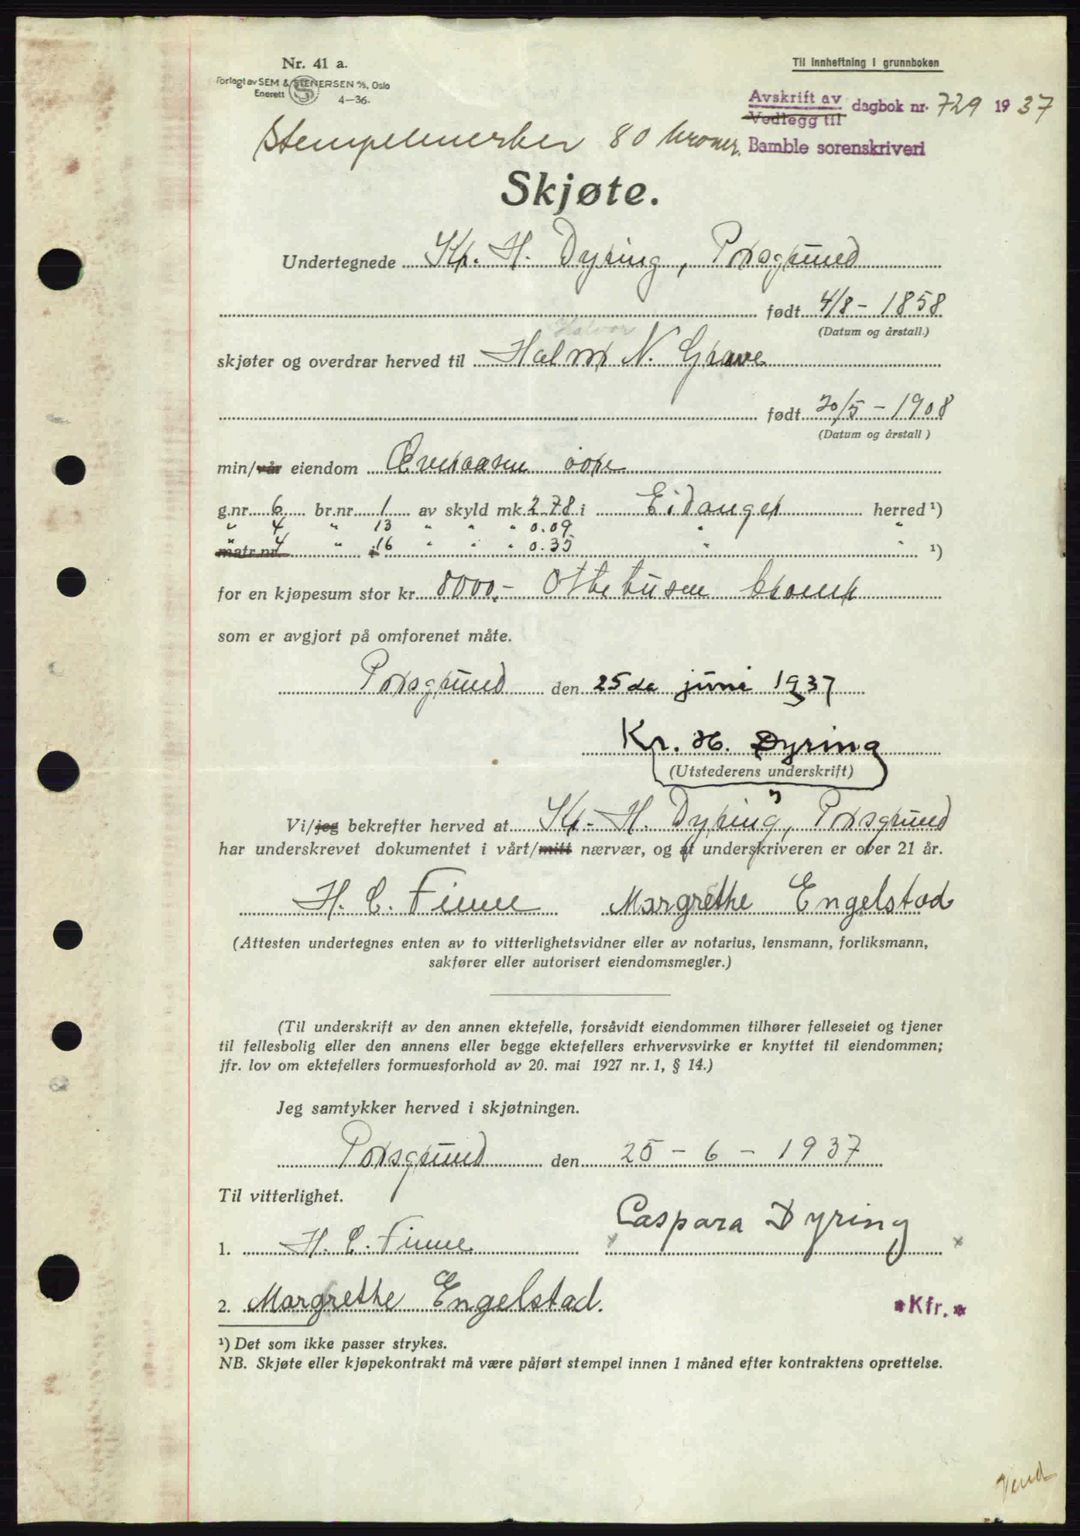 Nr. 41 a.
Til innheftning i grunnboken
Forlagt av SEM & STENERSEN A/S, Oslo
Enerett 4—36.
Avskrift av
Vedlegg til
dagbok nr. 729 1937
Bamble sorenskriveri
Stempelmerker 80 kroner.
Skjøte.
Undertegnede Kr. H. Dyring, Porsgrund
født 4/8 - 1858
(Datum og årstall.)
Halvor
skjøter og overdrar herved til N. Grave
født 20/5 - 1908
(Datum og årstall )
min/vår eiendom øvre
g.nr. 6 br.nr. 1 av skyld mk. 2.78 i Eidanger herred ¹)
" 4 " 13 " " " 0.09 " "
matr.nr. 4 " i 16 " " " 0.35 " " ¹)
for en kjøpesum stor kr. 8000,- Ottetusen kroner
som er avgjort på omforenet måte.
Porsgrund den 25de juni 1937
Kr. H. Dyring
(Utstederens underskrift)
Vi/jeg bekrefter herved at Kr. H. Dyring, Porsgrund
har underskrevet dokumentet i vårt/mitt nærvær, og at underskriveren er over 21 år.
H. C. Finne Margrethe Engelstad
(Attesten undertegnes enten av to vitterlighetsvidner eller av notarius, lensmann, forliksmann,
sakfører eller autorisert eiendomsmegler.)
(Til underskrift av den annen ektefelle, forsåvidt eiendommen tilhører felleseiet og tjener
til fellesbolig eller den annens eller begge ektefellers erhvervsvirke er knyttet til eiendommen;
jfr. lov om ektefellers formuesforhold av 20. mai 1927 nr. 1, § 14.)
Jeg samtykker herved i skjøtningen.
Porsgrund den 25 - 6 - 1937
Til vitterlighet.
Caspara Dyring
1. H. C. Finne
2. Margrethe Engelstad.
*Kfr.*
¹) Det som ikke passer strykes.
NB. Skjøte eller kjøpekontrakt må være påført stempel innen 1 måned efter kontraktens oprettelse.
Vend